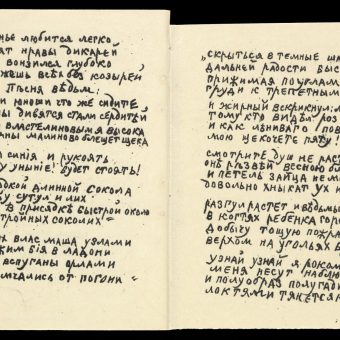 нье любится легко
ат нравы дикарей
вонзился глубоко
жешь всѣхъ козырей
Пѣсня вѣдьм:
и юноши что же сидите
ы дивятся стали сердитѣй
властелиновым я высока
аны малиново блещет щека
синiя и рукоять
у унынiе! будет стоять!
бкой длинной сокола
у сутул и лих
в присядкѣ быстрой около
тройных соколих"
х влас маша узлами
жим бiя в ладони
вспуганы орлами
мчались от погони"
„скрыться в темные ша
дальней радости быс
прижимая
груди к трепетным
и жирный вскрикнул: м
тому кто видѣл роз
и как лѣниваго пов
мою щекочете пяту!
смотрите душ не раст
онъ рѣзвѣй весною бы
и петель зайца нем
довольно хныкат ух и
разгул растет и вѣдьмы
в когтях ребенка горо
добычу тощую пожра
верхом на угольях б
узнай узнай я роком
меня несут наблю
и полуобраз полугади
локтями тянется